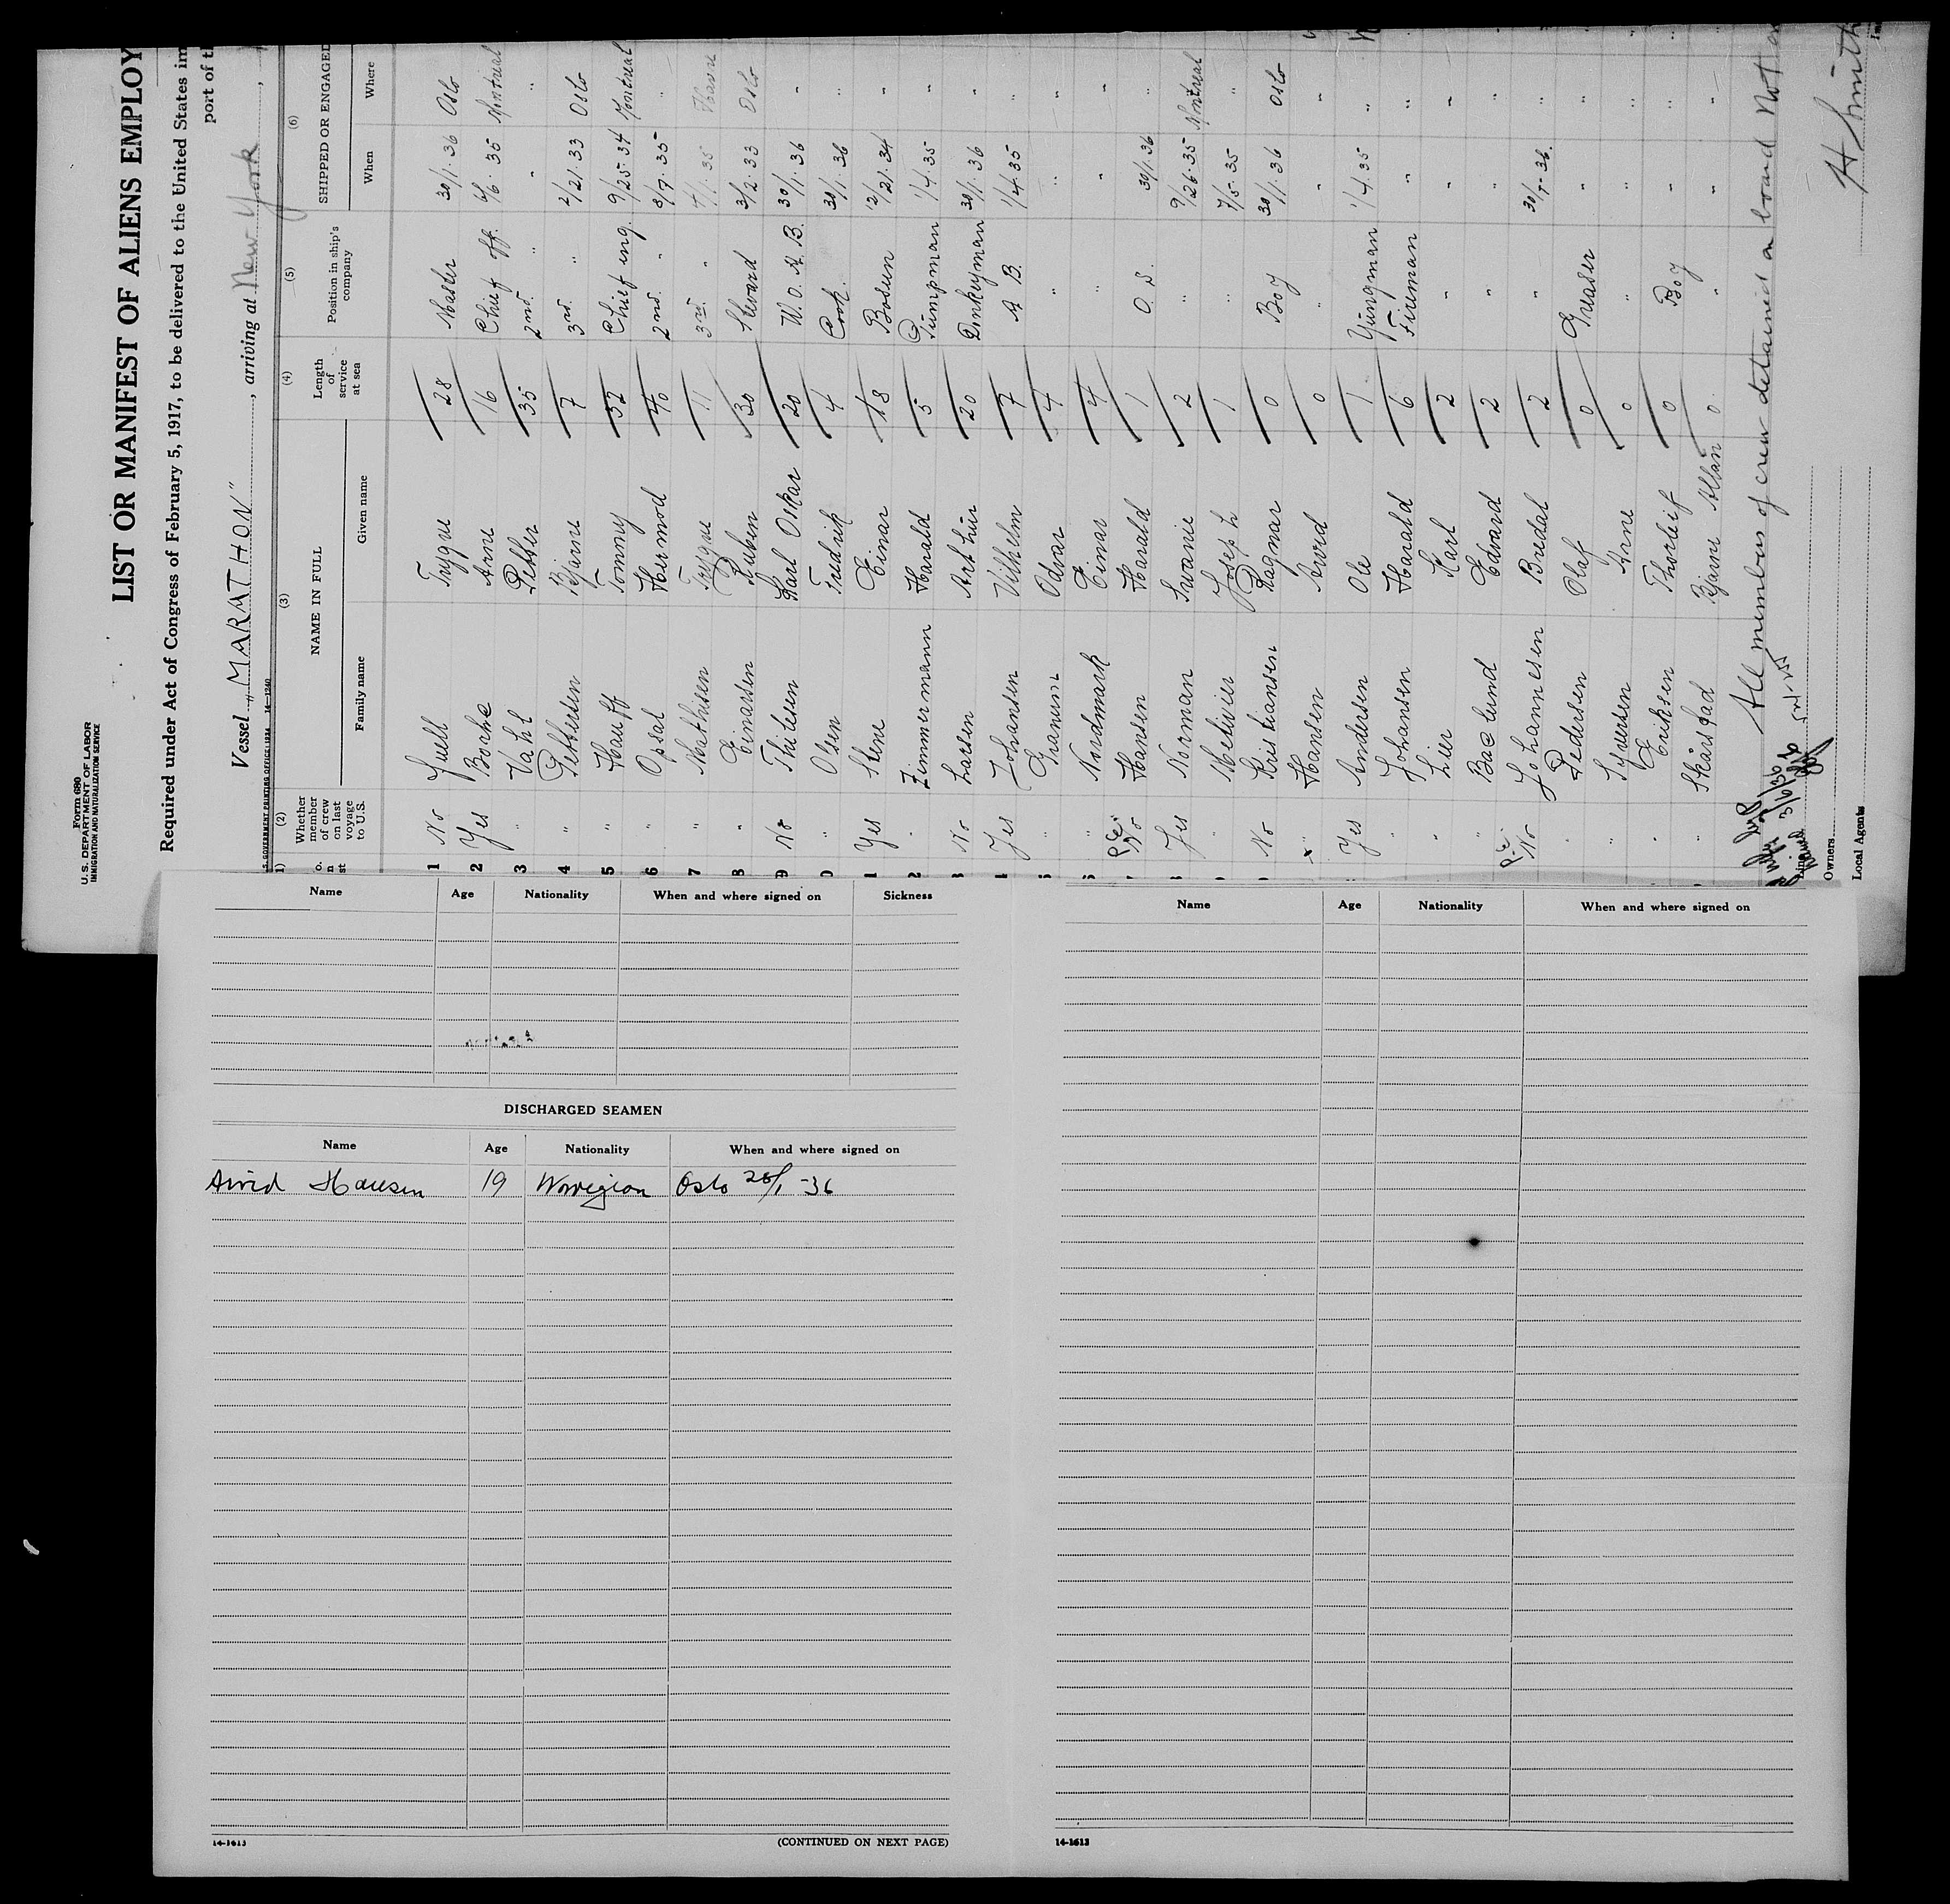 Form 680
U.S. DEPARTMENT OF LABOR
IMMIGRATION AND NATURALIZATION SERVICE
LIST OR MANIFEST OF ALIENS EMPLOY
Required under Act of Congress of February 5, 1917, to be delivered to the United States im
port of th
Vessel "MARATHON", arriving at New York,
U.S. GOVERNMENT PRINTING OFFICE
(2) (3) (4) (5) (6)
Whether member of crew on last voyage to U.S. NAME IN FULL Length of service at sea Position in ship's company SHIPPED OR ENGAGED
Family name Given name When Where
1 No Juell Trygve 28 Master 30/1.36 Oslo
2 Yes Arne 16 Chief off. 6/6.35 Montreal
3 " Vahl Petter 35 2nd. " " "
4 " Pettersen Bjarne 7 3rd. " 2/21.33 Oslo
5 " Hauff Tommy 32 Chief eng. 9/25.34 Montreal
6 " Opdal Hermod 40 2nd. " 8/7.35 "
7 " Mathisen Trygve 11 3rd. " 35 Havre
8 " Einarsen Reuben 30 Steward 3/2.33 Oslo
9 No Thilesen Karl Oskar 20 W.O. A.B. 30/1.36 "
0 " Olsen Fredrik 4 Cook. 30/1.36 "
1 Yes Stene Einar 18 Bosun 12/21.34 "
2 " Zimmermann Harald 5 Pumpman 1/4.35 "
3 No Larsen Arthur 20 Donkeyman 30/1.36 "
Yes Johansen Vilhelm 7 A.B. 1/4.35 "
" Odvar 4 " " "
6 " Nordmark Einar 4 " " "
No Hansen Harald 1 O.S. 30/1.36
Yes Norman 2 " 9/26.35 Montreal
" Metivier Joseph 1 " 7/5.35 "
No Kristiansen Ragnar 0 Boy 30/1.36 Oslo
x Hansen Arvid 0 " " "
Yes Andersen Ole 1 Yüngman 1/4.35 "
" Johansen Harald 6 Fireman " "
" Lier Karl 2 " " "
" Edvard 2 " " "
No Johannesen Bredal 2 " "
" Pedersen Olaf 0 Greaser " "
" Arne 0 " " "
" Eriksen Thorleif 0 Boy " "
" Bjarne Allan 0 " " "
All members of crew detained on board Not
Owners
Local Agents
Name Age Nationality When and where signed on Sickness
DISCHARGED SEAMEN
Name Age Nationality When and where signed on
Arvid Hansen 19 Norwegian Oslo 28/1-36
14-1613 (CONTINUED ON NEXT PAGE)
Name Age Nationality When and where signed on
14-1613